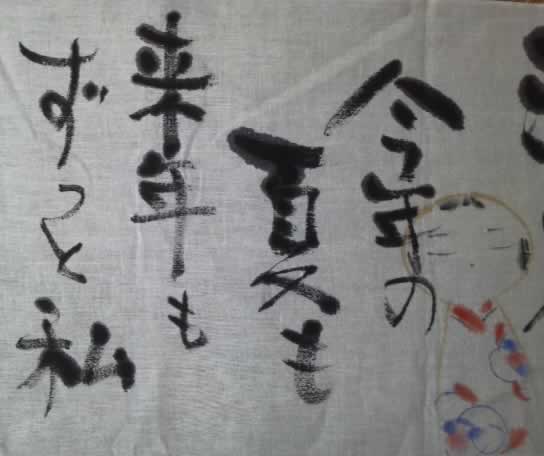 今年の
夏も
来年も
ずっと私